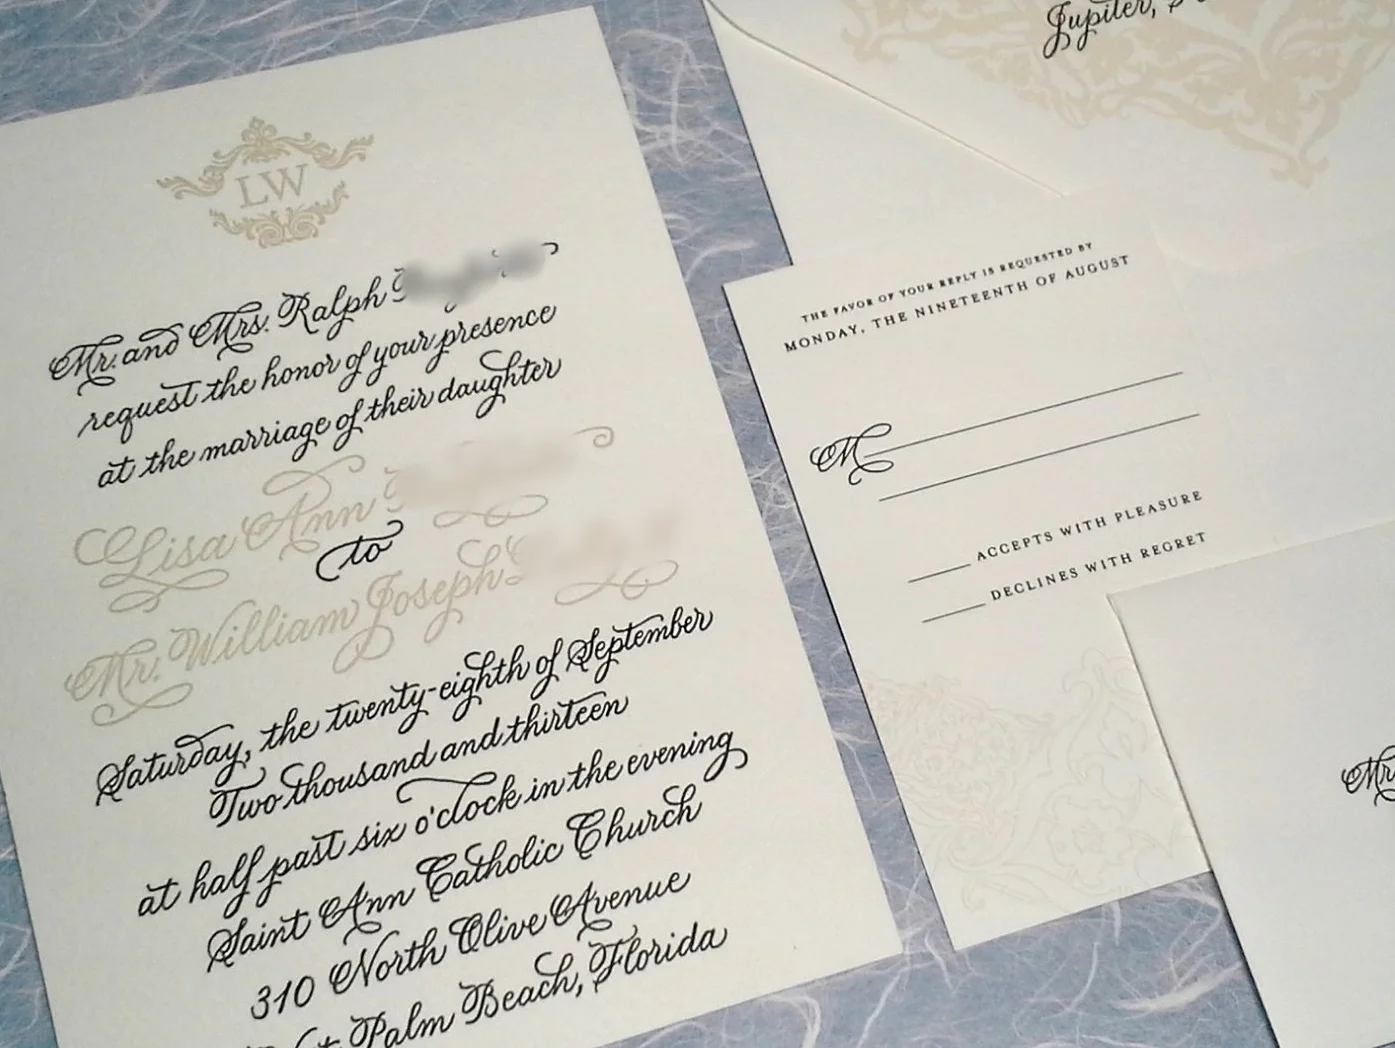 LW
Mr. and Mrs. Ralph
request the honor of your presence
at the marriage of their daughter
Lisa Ann
to
Mr. William Joseph
Saturday, the twenty-eighth of September
Two thousand and thirteen
at half past six o'clock in the evening
Saint Ann Catholic Church
310 North Olive Avenue
Palm Beach, Florida
Jupiter,
THE FAVOR OF YOUR REPLY IS REQUESTED BY
MONDAY, THE NINETEENTH OF AUGUST
M
ACCEPTS WITH PLEASURE
DECLINES WITH REGRET
Mrs